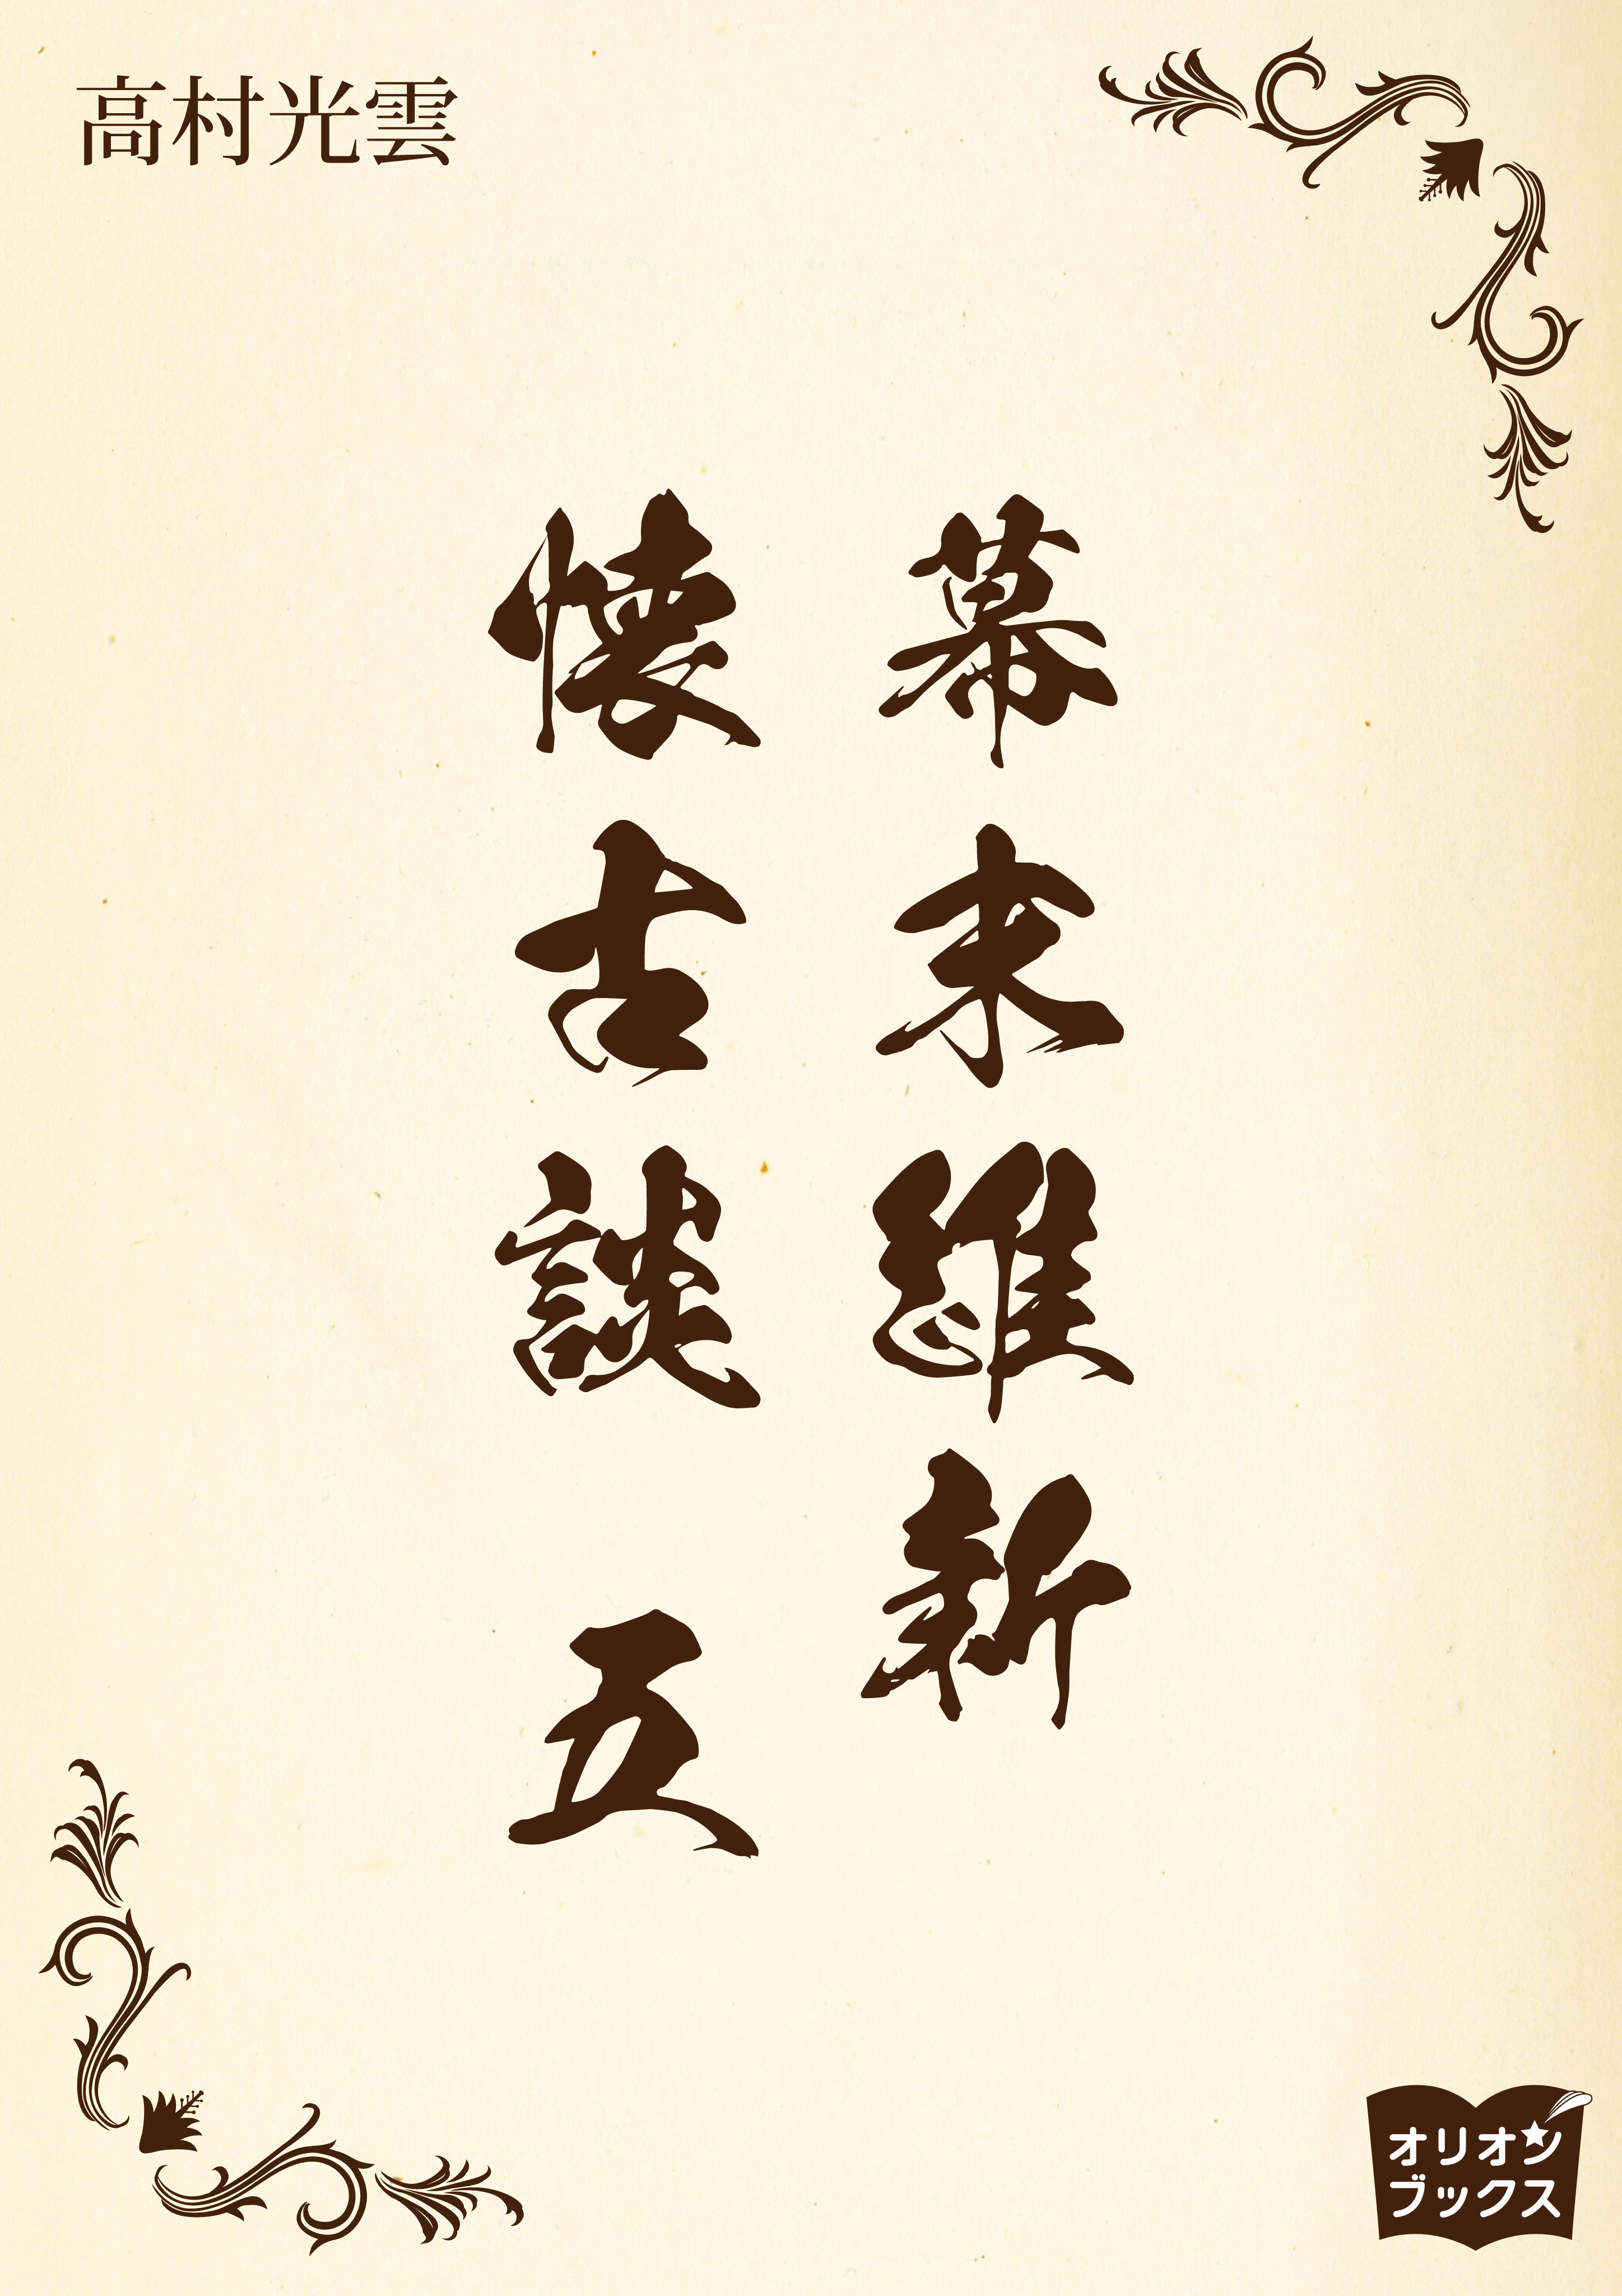 高村光雲
幕末維新
懐古談 五
オリオン
ブックス